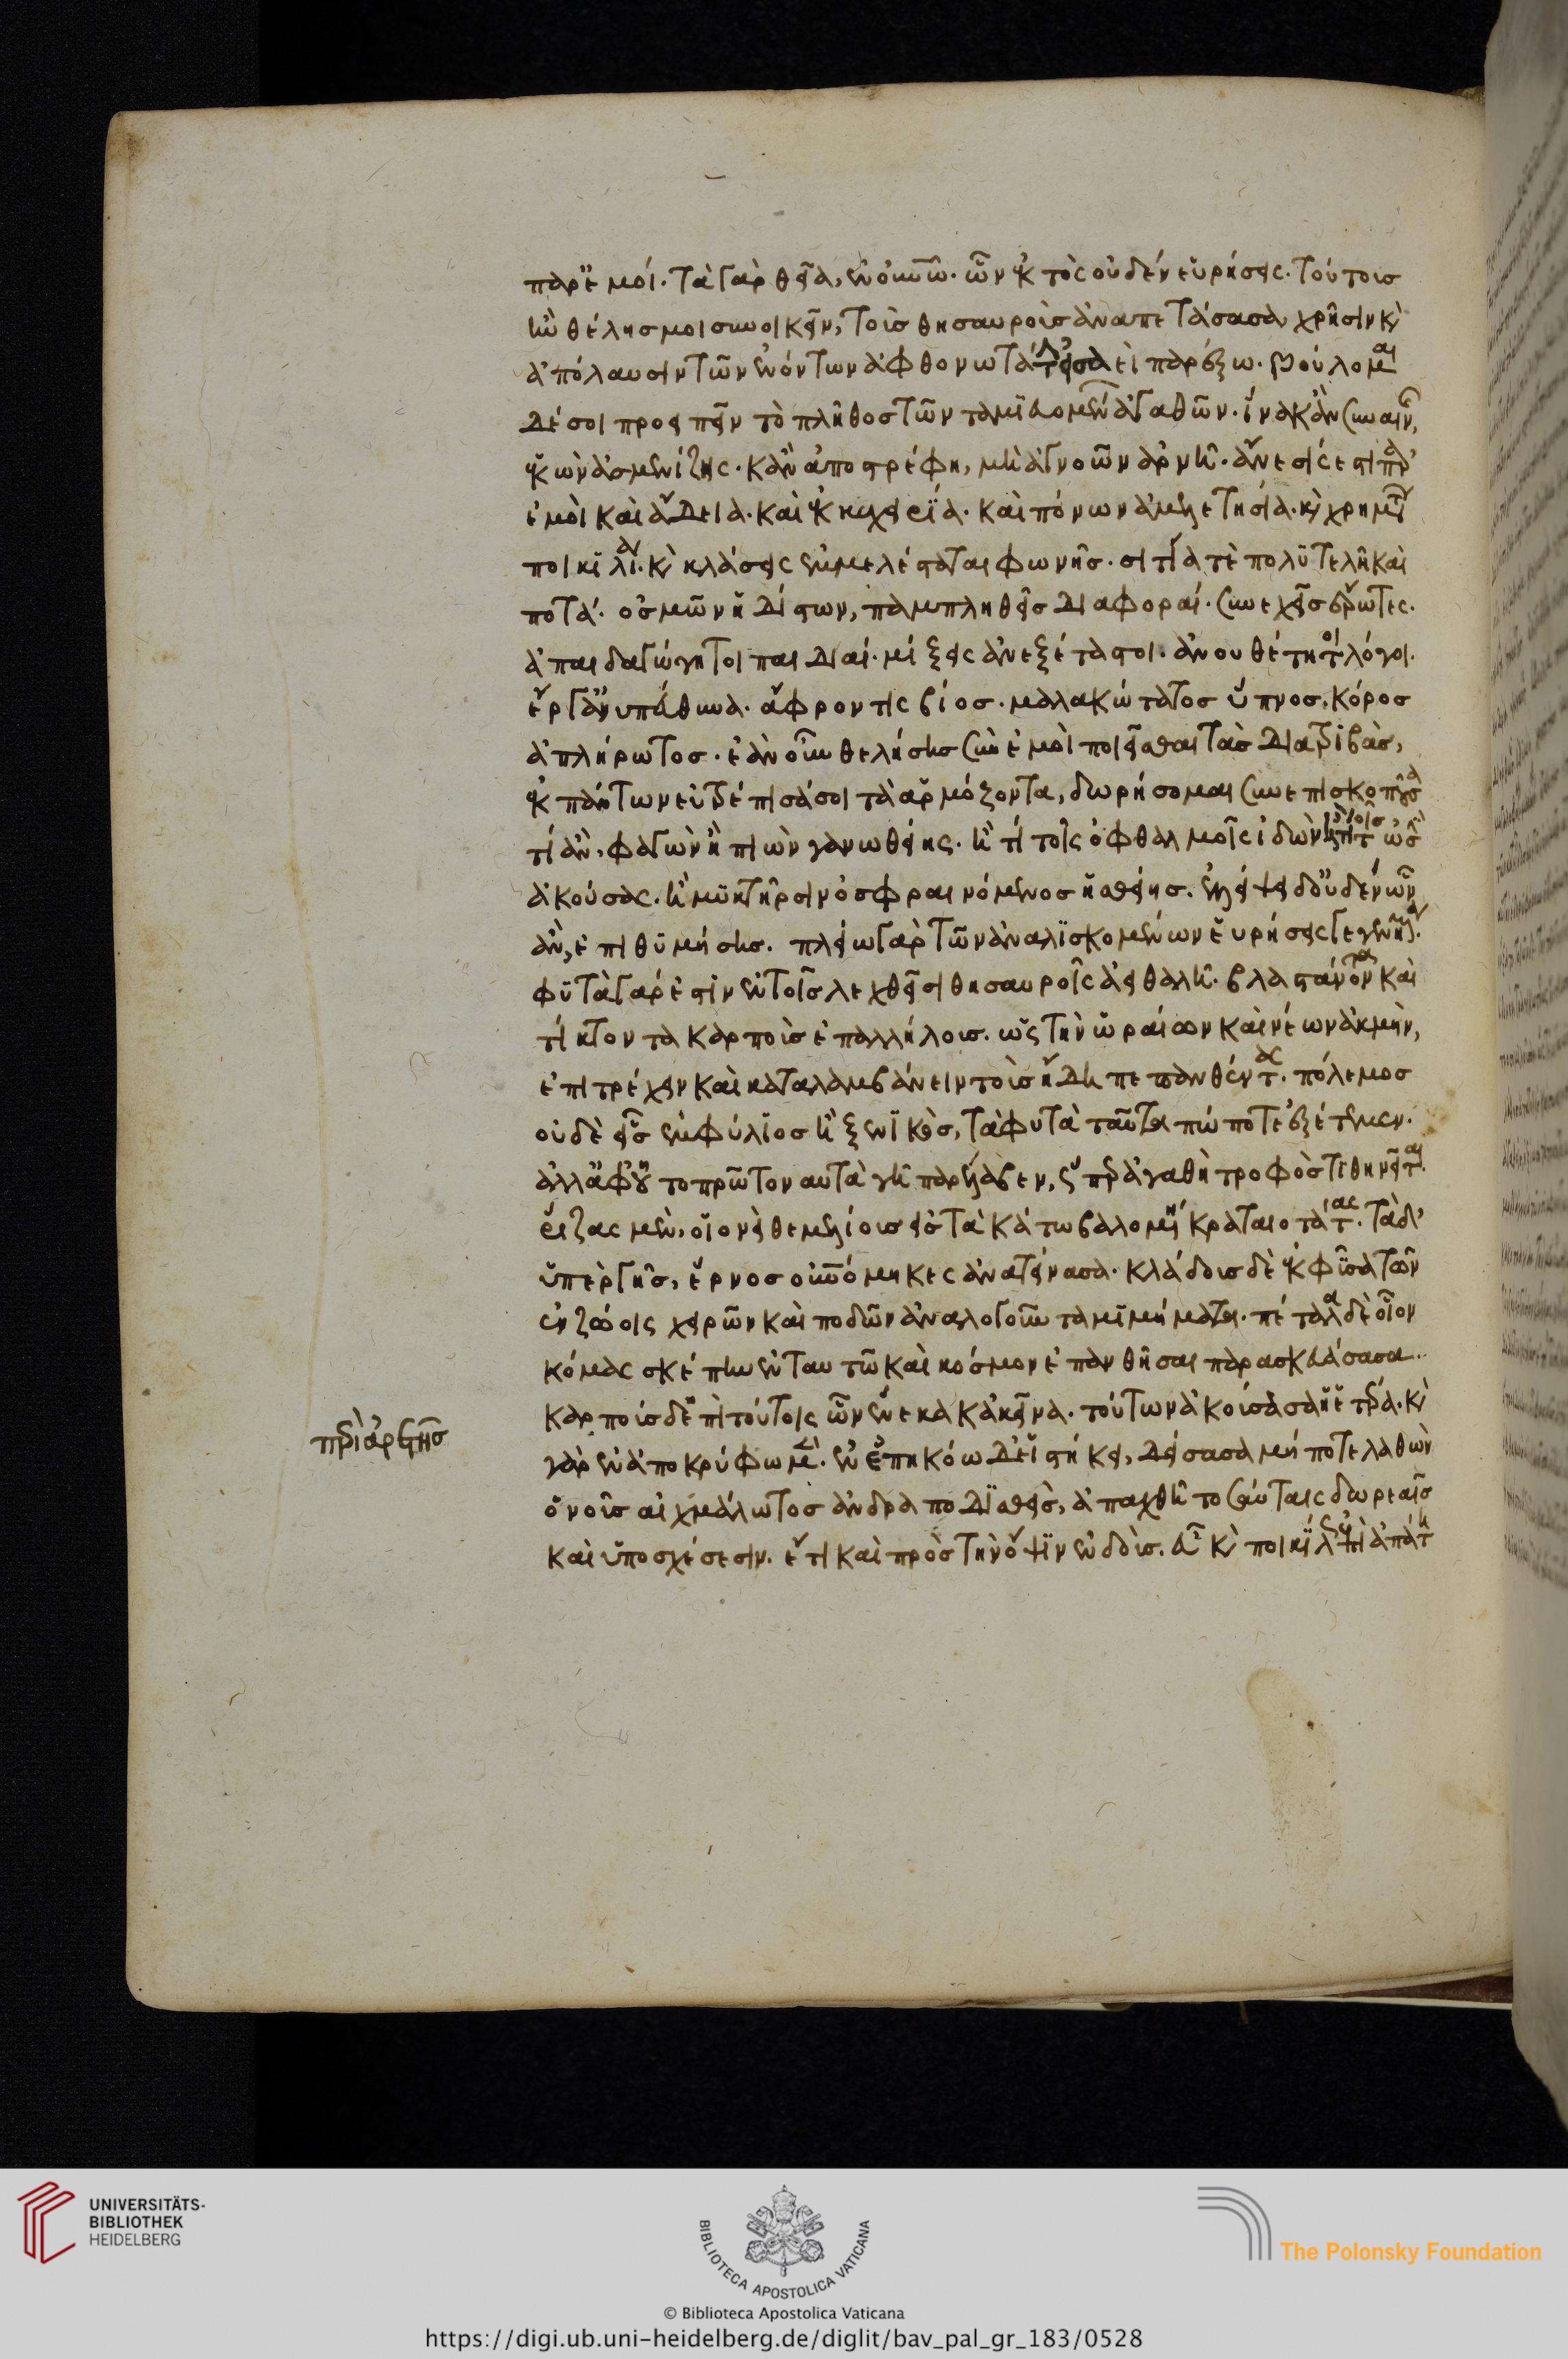 παρ' ἐμοί. τὰ γὰρ θεῖα, ἐν ὄγκω. ὧν ἐκτὸς οὐδὲν εὑρήσεις. τούτοις
ἢν θελήσης μοι συνοικεῖν, τοὺς θησαυροὺς ἀναπετάσασα χρῆσιν καὶ
ἀπόλαυσιν τῶν ἐνόντων ἀφθονωτάτην εἰσαεὶ παρέξω. βούλομαι
δέ σοι προσειπεῖν τὸ πλῆθος τῶν ταμιευομένων ἀγαθῶν. ἵνα κἂν συναινῆς,
ἑκὼν ἀσμενίζης. κἂν ἀποστρέφη, μὴ ἀγνοῶν ἀρνῆ. ἄνεσίς ἐστι παρ'
ἐμοὶ καὶ ἄδεια. καὶ ἐκεχειρία. καὶ πόνων ἀμελετησία. καὶ χρημάτων
ποικιλίαι. καὶ κλάσεις ἐμμελέσταται φωνῆς. σιτία τὲ πολυτελῆ καὶ
ποτά. ὀσμῶν ἡδίστων, παμπληθεῖς διαφοραί. συνεχεῖς ἔρωτες.
ἀπαιδαγώγητοι παιδιαί. μίξεις ἀνεξέταστοι. ἀνουθέτητοι λόγοι.
ἔργα ἀνυπεύθυνα. ἄφροντις βίος. μαλακώτατος ὕπνος. κόρος
ἀπλήρωτος. ἐὰν οὖν θελήσης σὺν ἐμοὶ ποιεῖσθαι τὰς διατριβὰς,
ἐκ πάντων εὐτρεπίσασά σοι τὰ ἁρμόζοντα, δωρήσομαι συνεπισκοποῦσα
τί ἂν φαγὼν ἢ πιὼν γανωθείης. ἢ τί τοῖς ὀφθαλμοῖς ἰδὼν ἢ τί τοῖς ὠσὶν
ἀκούσας. ἢ μυκτῆρσιν ὀσφραινόμενος ἡσθείης. ἐλλείψει δ' οὐδὲν ὧν
ἂν, ἐπιθυμήσης. πλείω γὰρ τῶν ἀναλισκομένων εὑρήσεις γεννώμενα.
φυτὰ γάρ ἐστιν ἐν τοῖς λεχθεῖσι θησαυροῖς ἀειθαλῆ. βλαστάνοντα καὶ
τίκτοντα καρποὺς ἐπαλλήλους. ὡς τὴν ὡραίων καὶ νέων ἀκμὴν,
ἐπιτρέχειν καὶ καταλαμβάνειν τοὺς ἤδη πεπανθέντας. πόλεμος
οὐδὲ εἷς ἐμφύλιος ἢ ξενικὸς, τὰ φυτὰ ταῦτα πώποτε ἐξέτεμεν.
ἀλλ' ἀφ' οὗ τοπρῶτον αὐτὰ γῆ παρέλαβεν, ὥσπερ ἀγαθὴ τροφὸς τιθηνεῖται.
ῥίζας μὲν, οἱονεὶ θεμελίους εἰς τὰ κάτω βαλομένη κραταιοτάτας. τὰ δ'
ὑπὲρ γῆς, ἔρνος οὐρανόμηκες ἀνατείνασα. κλάδους δὲ ἐκφῦσα τῶν
ἐν ζώοις χειρῶν καὶ ποδῶν ἀναλογοῦν τα μιμήματα. πέταλα δὲ οἷον
κόμας σκέπην ἐν ταυτῶ καὶ κόσμον ἐπανθῆσαι παρασκευάσασα.
καρποὺς δ' ἐπὶ τούτοις ὧν ἕνεκα κἀκεῖνα. τούτων ἀκούσασα ἡ ἑτέρα. καὶ
γὰρ ἐν ἀποκρύφω μὲν. ἐν ἐπηκόω δὲ εἱστήκει, δείσασα μήποτε λαθὼν
ὁ νοῦς αἰχμάλωτος ἀνδραποδισθεὶς, ἀπαχθῆ τοσαύταις δωρεαῖς
καὶ ὑποσχέσεσιν. ἔτι καὶ πρὸς τὴν ὄψιν ἐνδοὺς. εὖ καὶ ποικίλως ἐπὶ ἀπάτη
περὶ ἀρετῆς
UNIVERSITÄTS-
BIBLIOTHEK
HEIDELBERG
BIBLIOTECA APOSTOLICA VATICANA
The Polonsky Foundation
© Biblioteca Apostolica Vaticana
https://digi.ub.uni-heidelberg.de/diglit/bav_pal_gr_183/0528